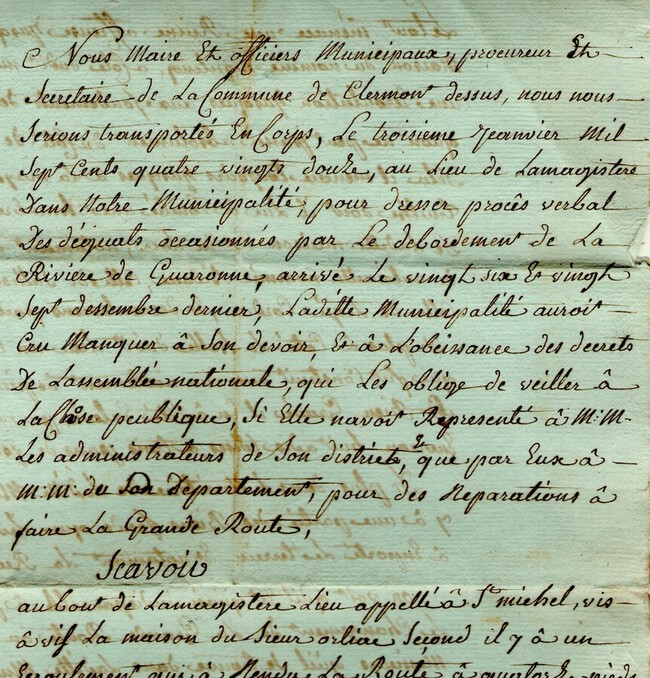 Nous Maire Et officiers Municipaux, procureur Et
Secretaire de La Commune de Clermont dessus, nous nous
Serions transportés En Corps, Le troisieme Jeanvier Mil
Sept Cents quatre vingts douze, au Lieu de Lamagistere
Dans Notre Municipalité, pour dresser procês verbal
Des déguats occasionnés par Le debordement de La
Riviére de Guaronne, arrivé Le vingt six Et vingt
Sept dessembre dernier, Laditte Municipalité auroit
Cru Manquer â Son devoir, Et â L'obeissance des decrets
De Lassemblée nationale, qui Les oblige de veiller â
La Chose peublique, Si Elle navoit Representé â M: M-
Les administrateurs de Son district, & que par Eux â
M: M: du Son Departement, pour des Reparations â
faire La Grande Route,
Scavoir
au bout de Lamagistere Lieu appellé â St michel, vis-
â vis La maison du Sieur orliac Second il y â un
Ecroulement qui â Rendu La Route â quatorze pieds